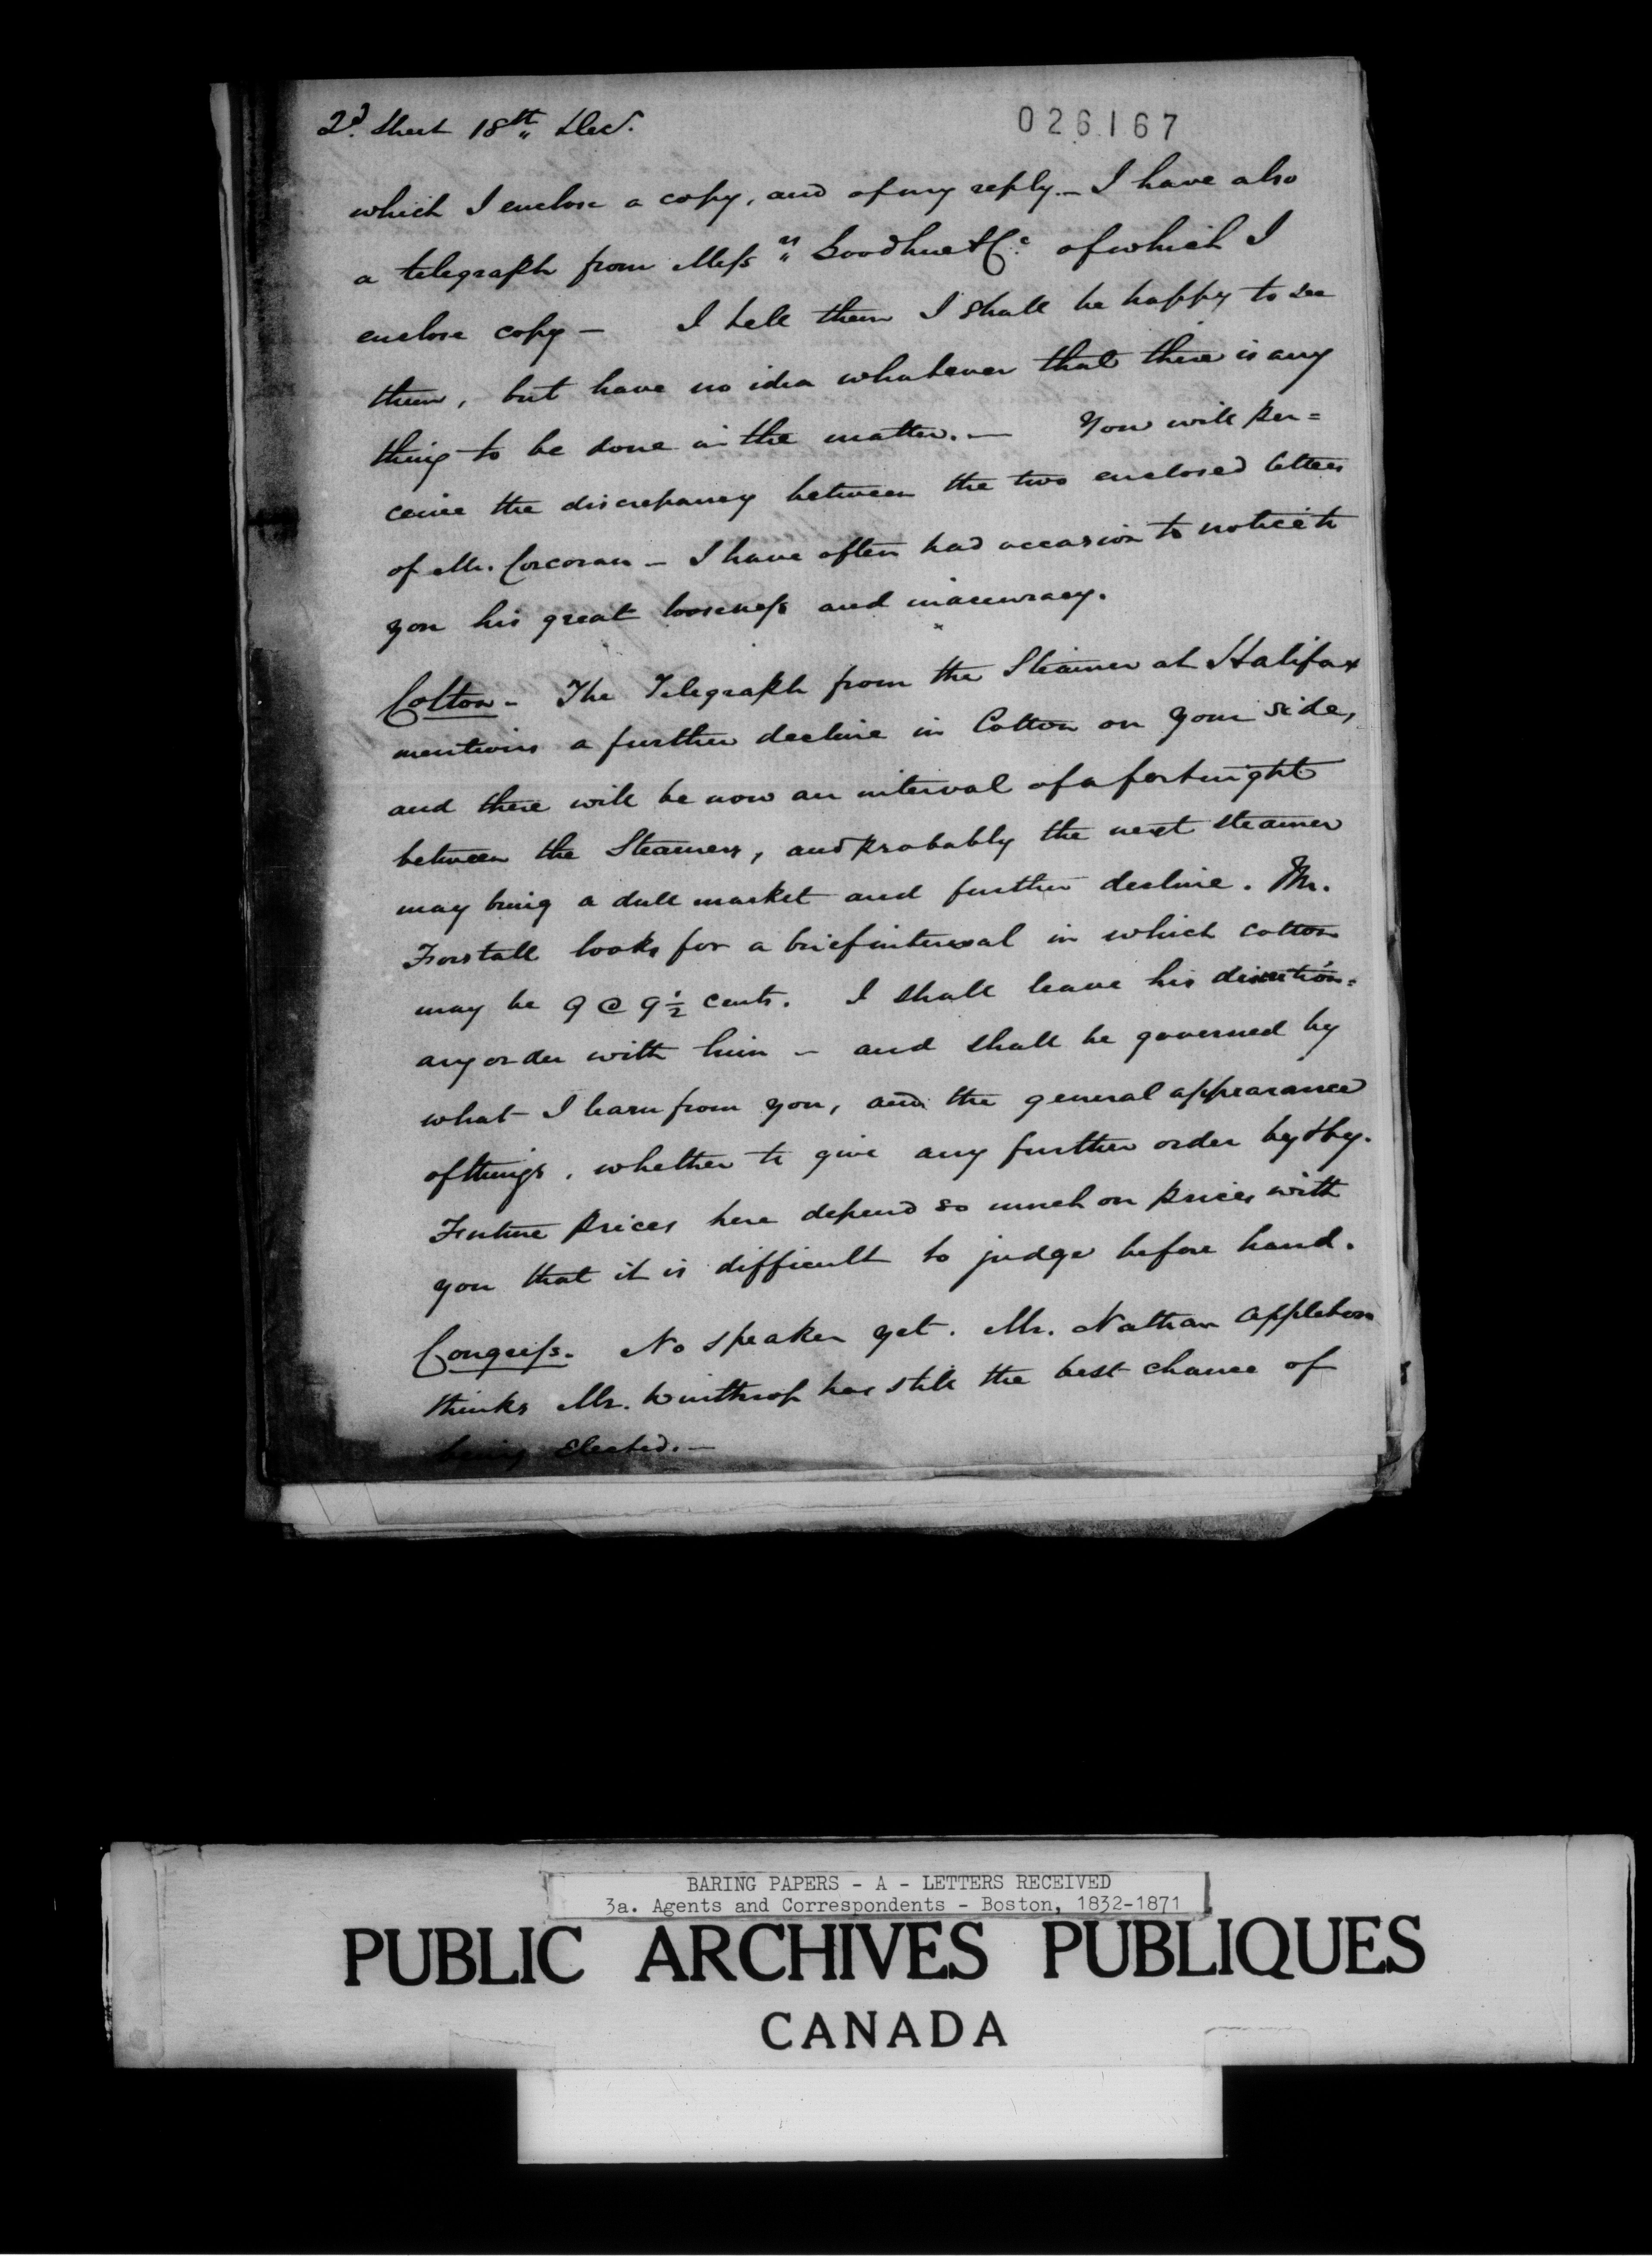 2d. Sheet 18th Dec.
026167
which I enclose a copy, and of my reply. - I have also
a telegraph from Messrs Goodhue & Co. of which I
enclose copy - I tell them I shall be happy to see
them, but have no idea whatever that there is any
thing to be done in the matter. - You will per=
ceive the discrepancy between the two enclosed letters
of Mr. Corcoran - I have often had occasion to notice to
you his great looseness and inaccuracy.
Cotton - The Telegraph from the Steamer at Halifax
mentions a further decline in Cotton on your side,
and there will be now an interval of a fortnight
between the Steamers, and probably the next steamer
may bring a dull market and further decline. Mr.
Forstall looks for a brief interval in which cotton
may be 9 @ 9½ cents. I shall leave his discretion=
ary order with him - and shall be governed by
what I learn from you, and the general appearance
of things, whether to give any further order by & by.
Future prices here depend so much on prices with
you that it is difficult to judge before hand.
Congress. No speaker yet. Mr. Nathan Appleton
thinks Mr. Winthrop has still the best chance of
being elected. -
BARING PAPERS - A - LETTERS RECEIVED
3a. Agents and Correspondents - Boston, 1832-1871
PUBLIC ARCHIVES PUBLIQUES
CANADA